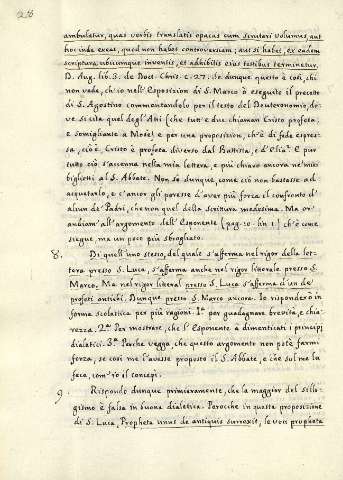 256
ambulatur, quas verbis translatis opacas cum scrutari volumus, aut
hoc inde exeat, quod non habet controversiam; aut si habet, ex eadem
scriptura ubicumque inventis, et adhibitis ejus testibus terminetur.
D. Aug. lib. 3. de Doct. Chris. c. 27. Se dunque questo è così, chi
non vede, ch'io nell'Esposizion di S. Marco ò eseguito il precetto
di S. Agostino commentandolo per il testo del Deuteronomio, do-
ve si cita quel degl'Atti (che tutt' e due chiaman Cristo profeta,
e somigliante a Mosè) e per una proposizion, ch'è di fede espres-
sa, cioè. Cristo è profeta diverso dal Battista, e d'Elia? E pur
tutto ciò s'accenna nella mia lettera, e più chiaro ancora ne' miei
biglietti al S. Abbate. Non so dunque, come ciò non bastasse ad
acquetarlo, e c'ancor gli paresse d'aver più forza il confronto d'
alcun de' Padri, che non quel della scrittura medesima. Ma or
andiam' all'argomento dell'Esponente (pag. 10. lin. 1.) ch'è come
segue ma un poco più sbrogliato.
8. Di quell'uno stesso, del quale s'afferma nel rigor della let-
tera presso S. Luca, s'afferma anche nel rigor litterale presso S.
Marco. Ma nel rigor litteral presso S. Luca s'afferma d'un de'
profeti antichi. Dunque presso S. Marco ancora. Io risponderò in
forma scolastica per più ragioni. 1.ª per guadagnare brevità, e chia-
rezza. 2.ª Per mostrare, che l'Esponente à dimenticati i principj
dialetici. 3.ª Perche vegga che questo argomento non potè farmi
forza, se così me l'avesse proposto il S. Abbate, e che sul ma la
feca, com' io il concepj.
9. Rispondo dunque primieramente, che la maggior del sillo-
gismo è falsa in buona dialetica. Perocche in questa proposizione
di S. Luca, Propheta unus de antiquis surrexit, le voci propheta